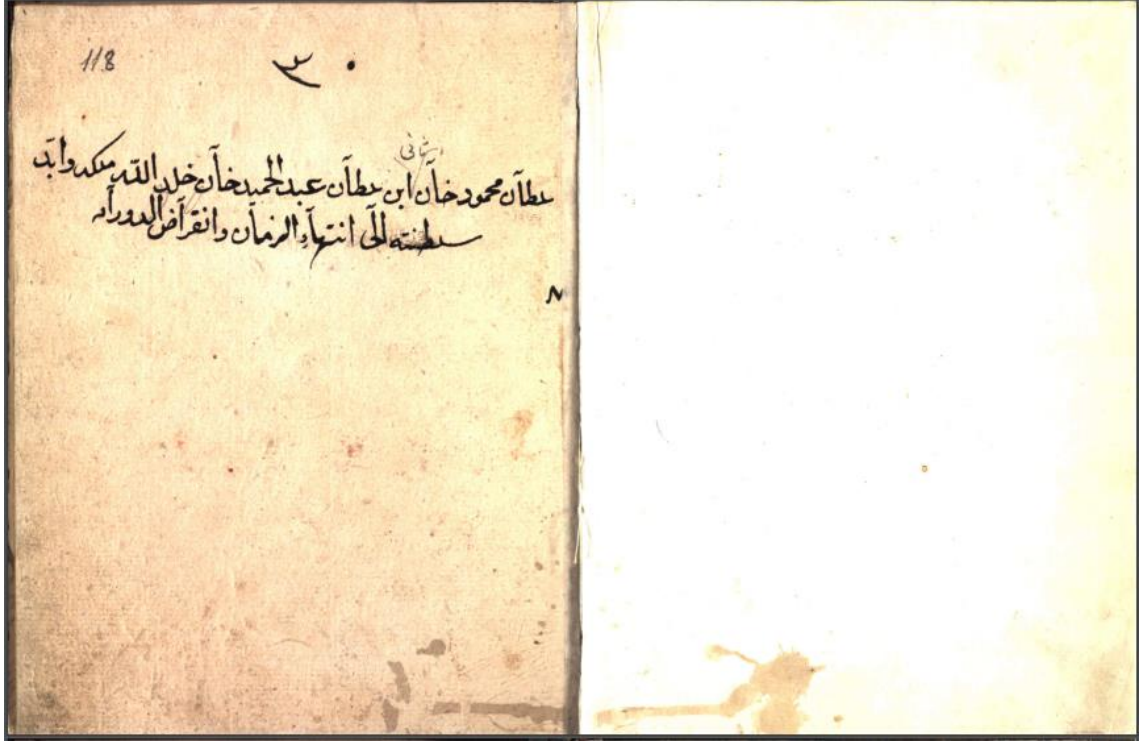 118
٣٠
ثانى
سلطان محمود خان ابن سلطان عبد الحميد خان خلد الله ملكه وابد
سلطنته الى انتهاء الزمان وانقراض الدوران